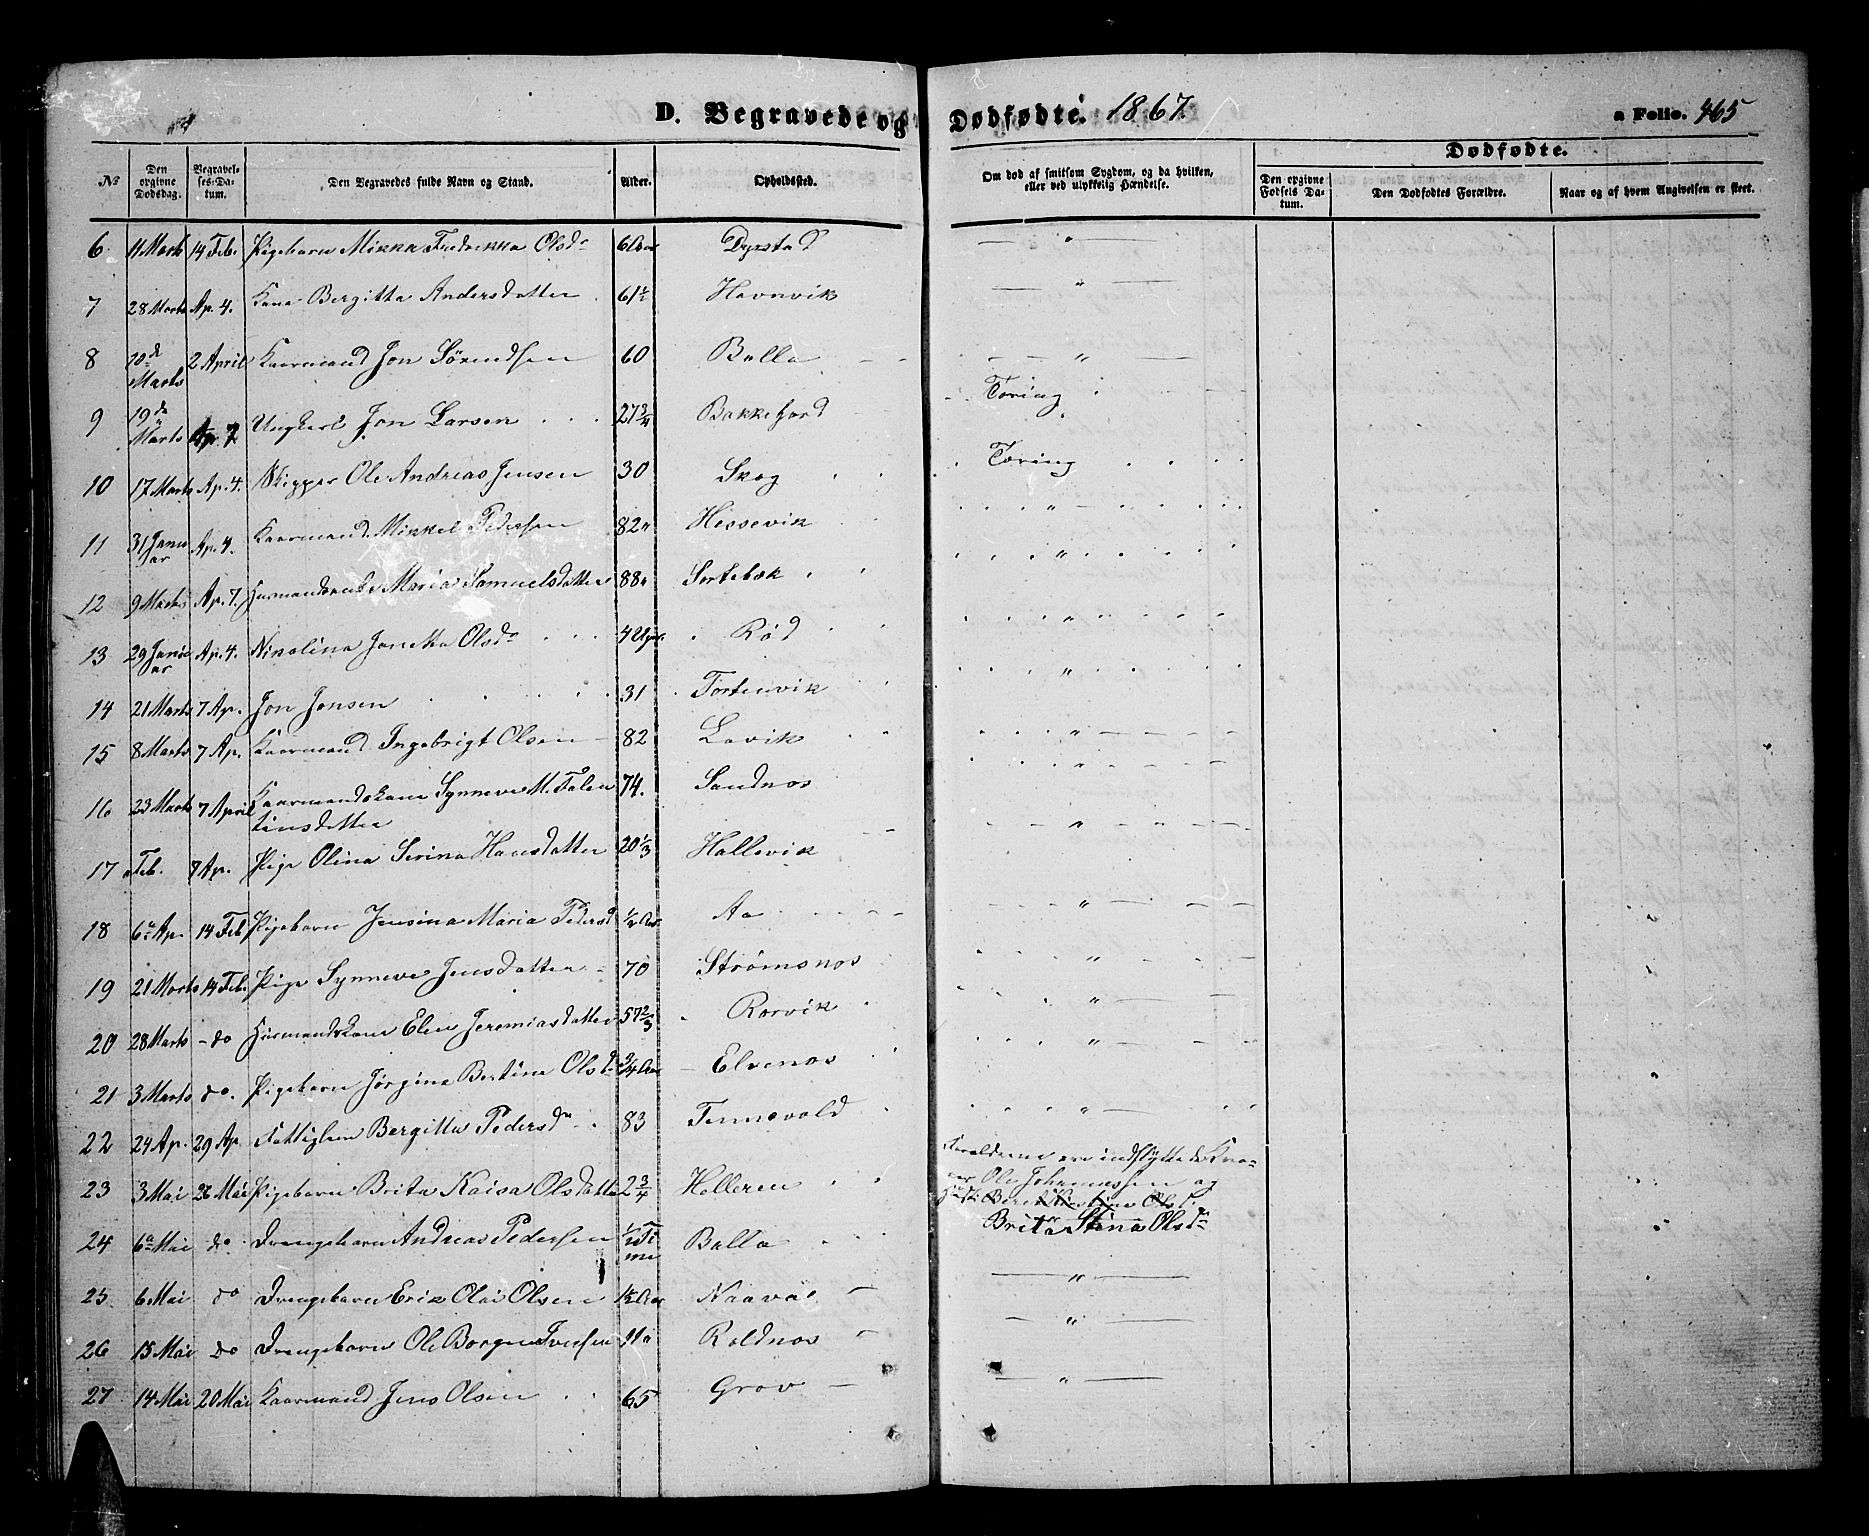 D. Begravede og Dødfødte. 1867. a Folio. 465
Dødfødte.
№ Den opgivne Dødsdag. Begravelses-Datum. Den Begravedes fulde Navn og Stand. Alder. Opholdssted. Om død af smitsom Sygdom, og da hvilken, eller ved ulykkelig Hændelse. Den opgivne Fødsels Datum. Den Dødfødtes Forældre. Naar og af hvem Angivelsen er skeet.
6. 11 Marts 14 Feb. Pigebarn Mikka Fredrikka Olsdr 6 Aar Dyrstad — " —
7 28 Marts Ap. 4. Kone Bergitta Andersdatter 61½ Havnvik — " —
8 10de Marts 2 April Kaarmand Jon Sørendsen 60 Balla — — " —
9 19de Marts Ap. 7 Ungkarl Jon Larsen 27¾ Bakkejord Tæring
10 17 Marts Ap. 4. Skipper Ole Andreas Jensen 30 Skog Tæring
11 31 Januar Ap. 4. Kaarmand Mikkel Pedersen 82 " Hessevik "
12 9 Marts Ap. 7. Husmandsenke Maria Samuelsdatter 88 " Sortebæk "
13 29 Januar Ap. 4. Nikolina Janetta Olsdr 4 Uger Rød "
14 21 Marts 7 Ap. Jon Jonsen 31 Tortenvik "
15 8 Marts 7 Ap. Kaarmand Ingebrigt Olsen 82 Lavik "
16 23 Marts 7 April Kaarmandskone Synneve M. Falentinsdatter 74. Sandnes "
17 Feb. 7 Ap. Pige Olina Serina Hansdatter 20⅓ Hallevik "
18 6te Ap. 14 Feb. Pigebarn Jensina Maria Pedersd ½ Aar Aa "
19 21 Marts 14 Feb. Pige Synneve Jensdatter 70 Strømsnes "
20 28 Marts - do Husmandskone Elen Jeremiasdatter 57⅔ Rørvik "
21 3 Marts do. Pigebarn Jørgina Bertine Olsdr ¾ Aar Elvenes "
22 24 Ap. 29 Ap. Fattiglem Bergitta Pedersdr 83 Tennevold "
23 3 Mai 26 Mai Pigebarn Brita Kaisa Olsdatter 2¾ Helleren Forældrene ere indflyttede Kvæner Ole Johannessen og Hustr.
Brita Stina Olsdr
24 6te Mai do. Drengebarn Andreas Pedersen ½ Time Balla
25 6 Mai do Drengebarn Erik Olai Olsen 1½ Aar — " —
26 15 Mai do Drengebarn Ole Borgen Iversen 11 " Roldnes — " —
27 14 Mai 20 Mai Kaarmand Jens Olsen 65 Grov — " —